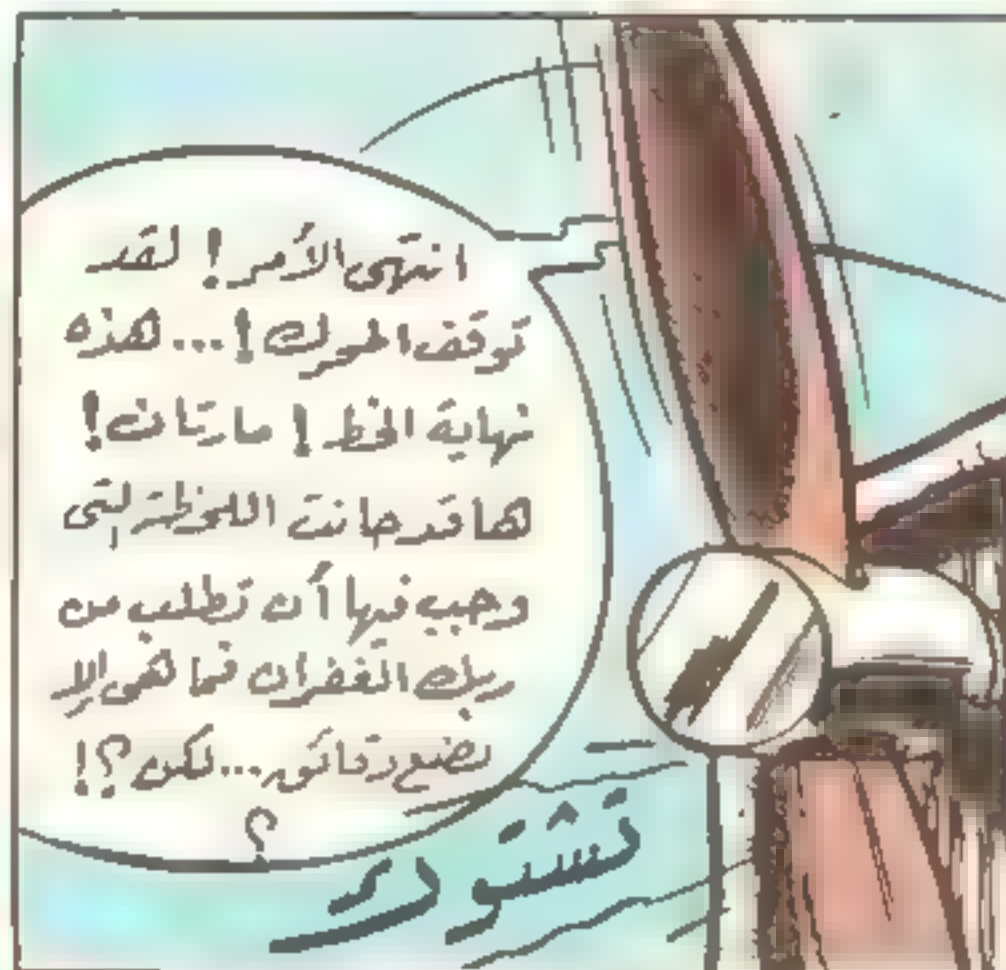 انتهى الأمر! لقد
توقف المحرك!... هذه
نهاية الخط! مارتان!
ها قد حانت اللحظة التي
وجب فيها أن تطلب من
ربك الغفران فما هي إلا
بضع دقائق... لكن؟!
؟